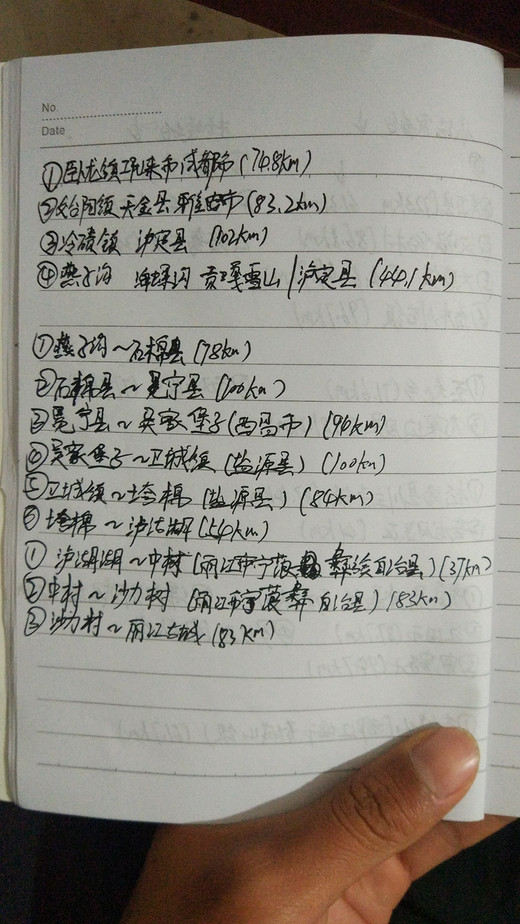 No.
Date
①卧龙镇 邛崃市 成都市 (74.8km)
②文台阳镇 天全县 雅安市 (83.2km)
③冷碛镇 泸定县 (102km)
④燕子沟 海螺沟 贡嘎雪山 / 泸定县 (44.1km)
①燕子沟~石棉县 (78km)
②石棉县~冕宁县 (100km)
③冕宁县~吴家堡子(西昌市) (96km)
④吴家堡子~卫城镇 (盐源县) (100km)
⑤卫城镇~垮棉 (盐源县) (84km)
⑥垮棉~泸沽湖 (54km)
① 泸湖湖~中村 (丽江市宁蒗彝族自治县) (37km)
②中村~沙力村 (丽江市宁蒗彝自治县) (83km)
③沙力村~丽江古城 (83km)